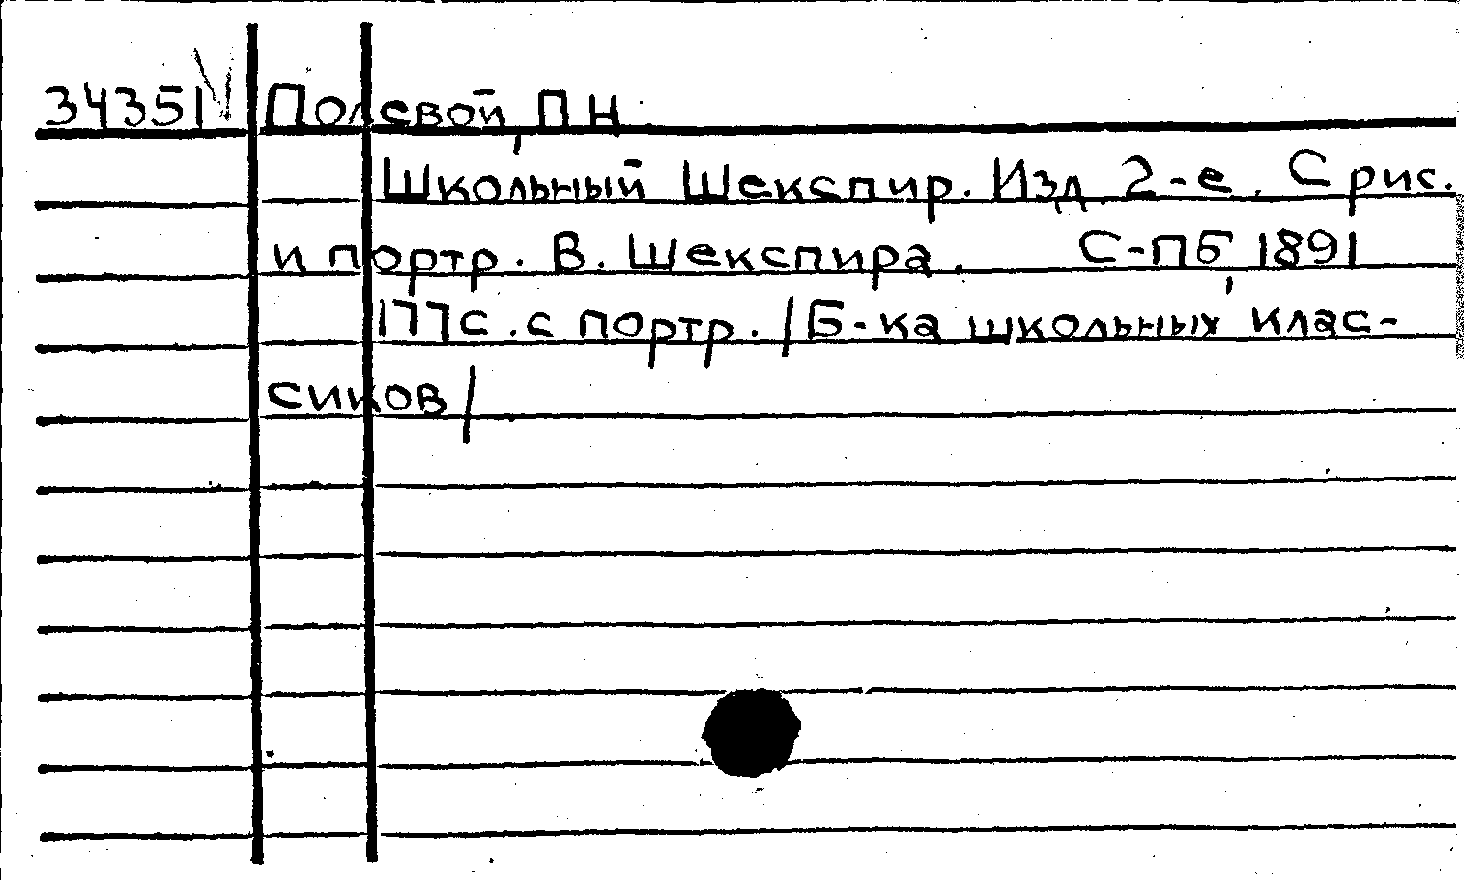 34351 Полевой, П Н.
Школьный Шекспир. Изд 2-е. С рис.
и портр. В. Шекспира. С-ПБ, 1891
177с. с портр. /Б-ка школьных клас-
сиков/